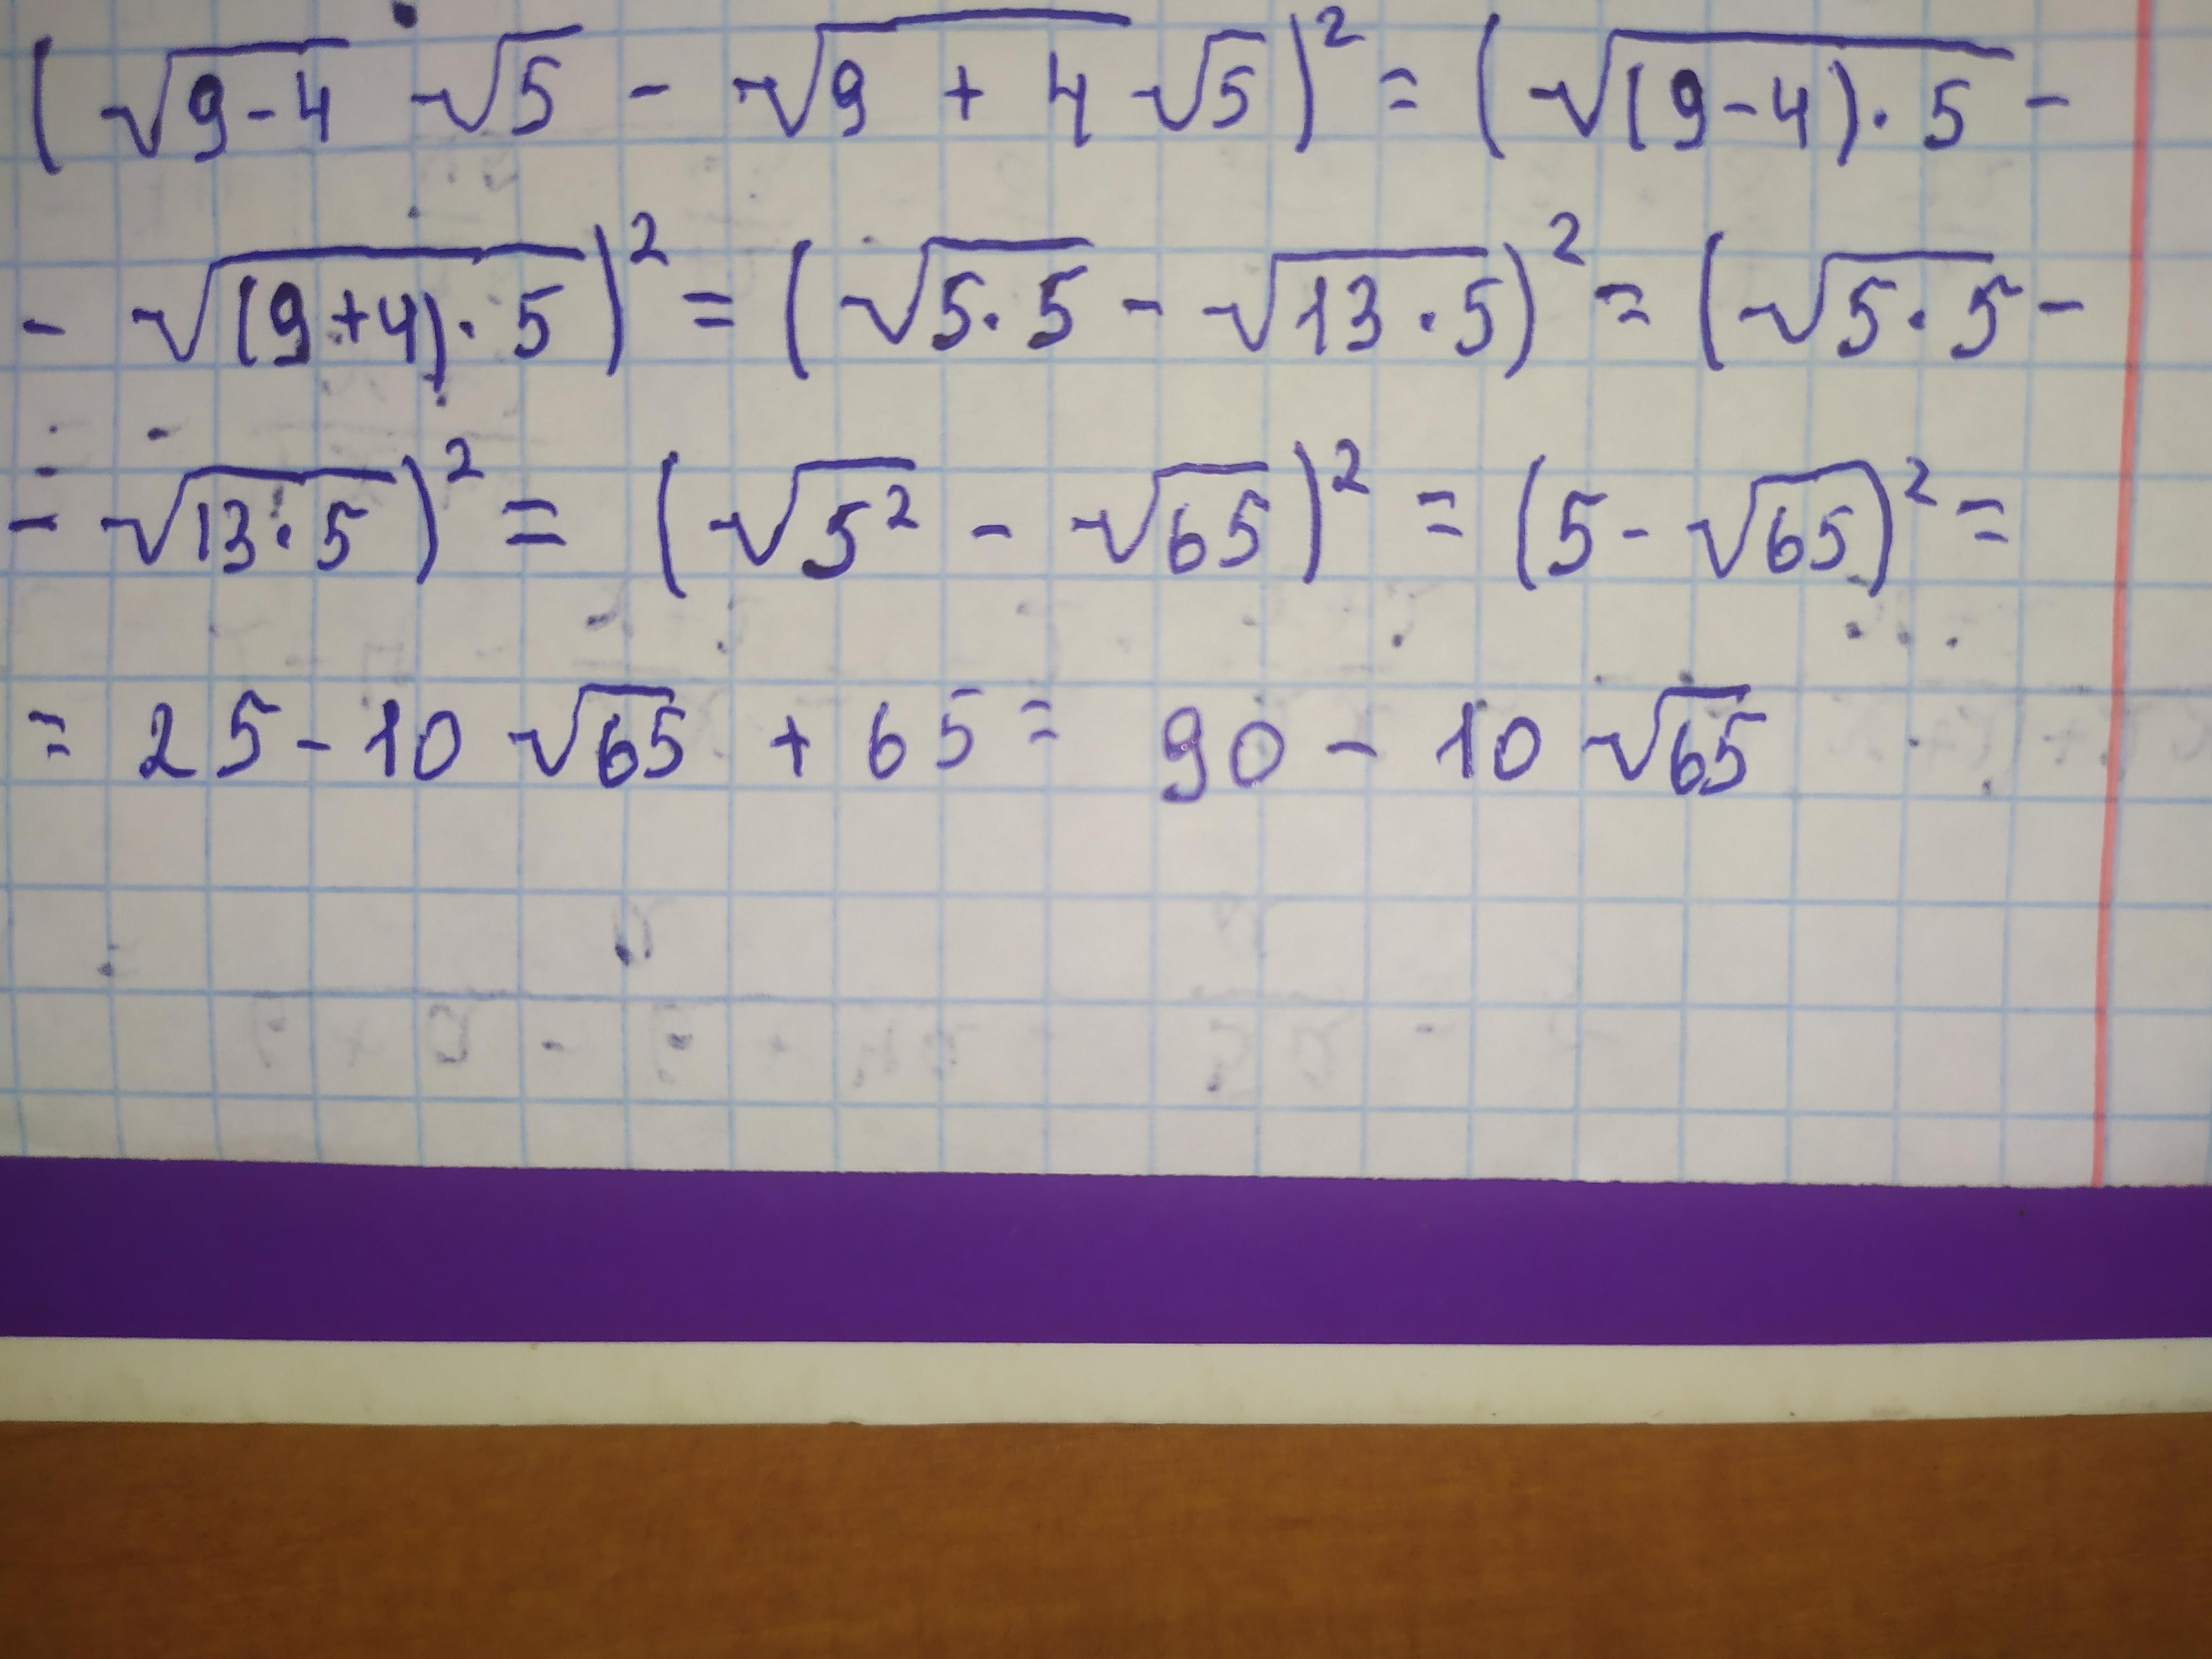 (√9-4 √5 - √9 + 4 √5)² = (√(9-4)·5 -
- √(9+4)·5)² = (√5·5 - √13·5)² = (√5·5 -
- √13·5)² = (√5² - √65)² = (5-√65)² =
= 25-10 √65 + 65 = 90 - 10 √65